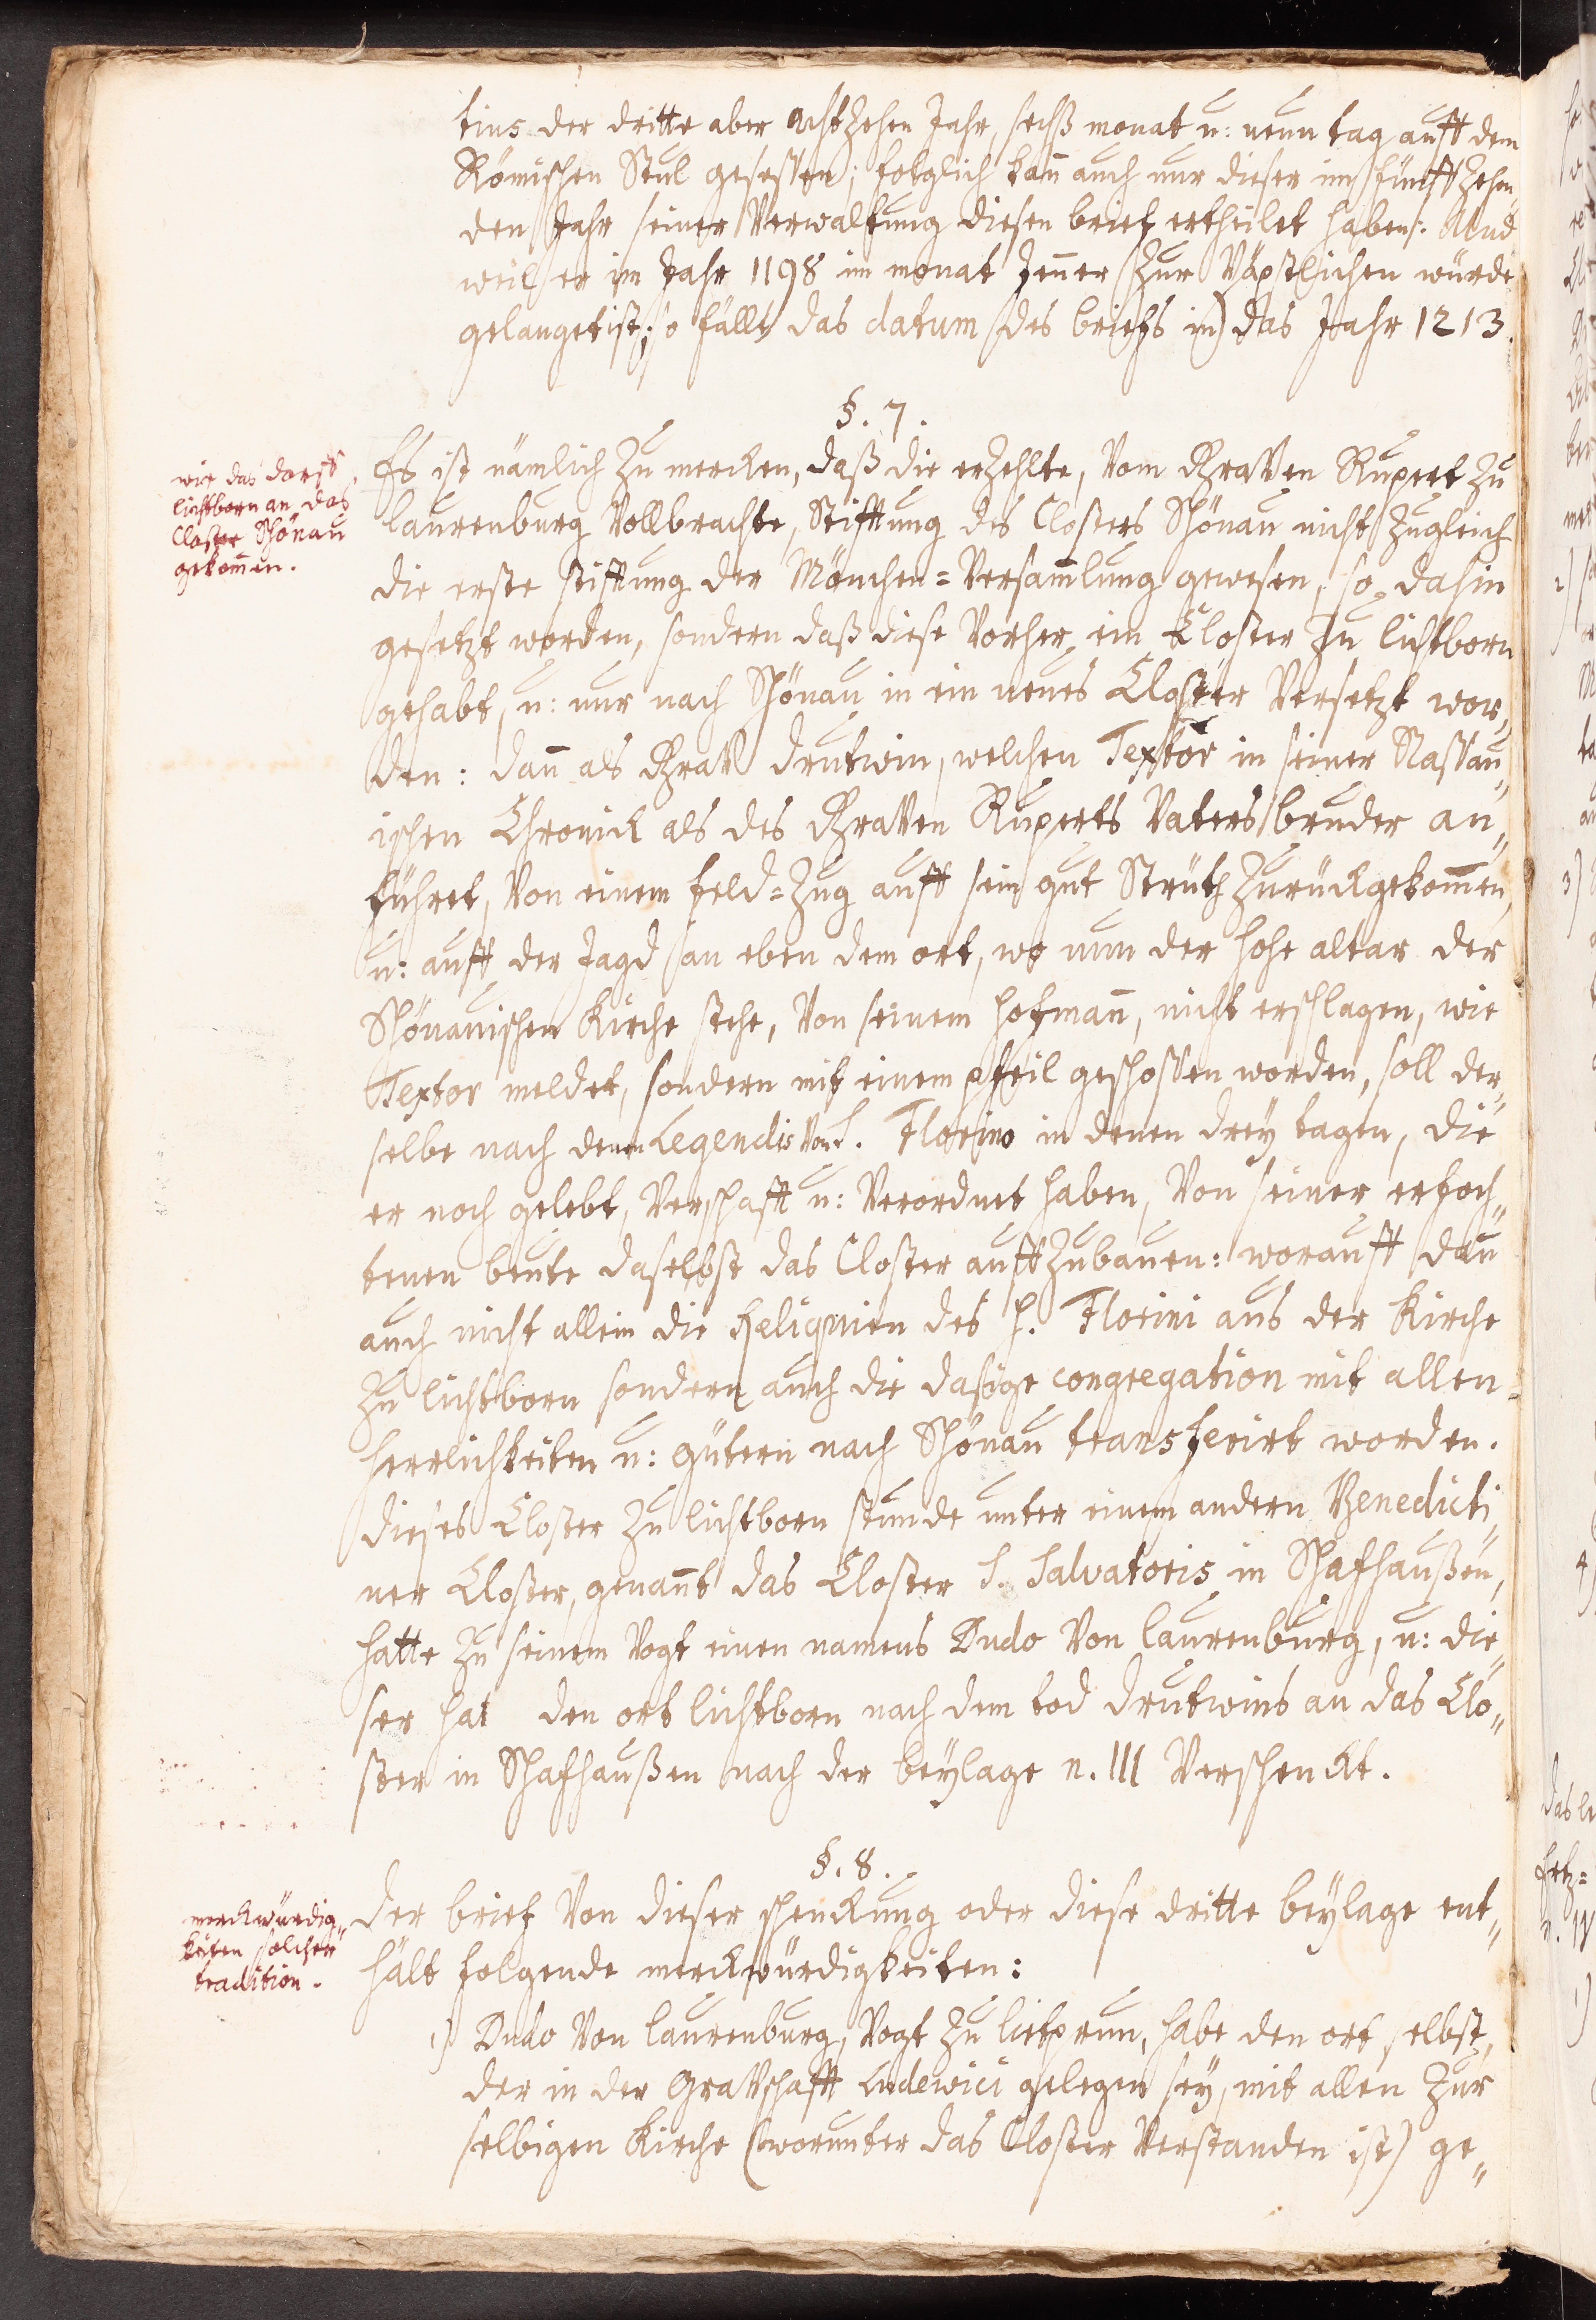 tius der dritte aber achtzehen Jahr, sechß monat u: neun tag auff dem
Römischen Stul gesessen; folglich kan̄ auch nur dieser im fünffzehen,,
den Jahr seiner Verwaltung diesen brief ertheilet haben: Und
weil er im Jahr 1198 im monat Jen̄er zur Päpstlichen würde
gelanget ist; so fällt das datum des briefs in das Jahr 1213.
§. 7.
wie das dorff
lichtborn an das
Closter Schönau
gekom̄en.
Es ist nämlich zu mercken, daß die erzehlte, Vom Graven Rupert zu
laurenburg Vollbrachte, Stifftung des Closters Schönau nicht zugleich
die erste stifftung der Mönchen=Versam̄lung gewesen, so dahin
gesetzt worden, sondern daß diese Vorher ein Closter zu lichtborn
gehabt, u: nur nach Schönau in ein neues Closter Versetzt wor,,
den: dan̄ als Grav drutwin, welchen Textor in seiner Nassau,,
ischen Chronick als des Graven Ruperts Vaters bruder an,,
führet, Von einem feld=Zug auff sein gut Strüth zurückgekom̄en,
u: auff der Jagd an eben dem ort, wo nun der hohe altar der
Schönauischen Kirche stehe, Von seinem hofman̄, nicht erschlagen, wie
Textor meldet, sondern mit einem pfeil geschossen worden, soll der,,
selbe nach denen Legendis Von S. Florino in denen drey tagen, die
er noch gelebt, Verschafft u: Verordnet haben, Von seiner erfoch,,
tenen beute daselbst das Closter auffzubauen: worauff dan̄
auch nicht allein die Reliquien des H. Florini aus der Kirche
zu lichtborn sondern auch die dasige congregation mit allen
herrlichkeiten u: gütern nach Schönau transferirt worden.
dieses Closter zu lichtborn stunde unter einem andern Benedicti,,
ner Closter, genan̄t das Closter S. Salvatoris in Schafhaußen,
hatte zu seinem Vogt einen namens Dudo Von laurenburg, u: die,,
ser hat den ort lichtborn nach dem tod drutwins an das Clo,,
ster in Schafhaußen nach der beylage n. III Verschenckt.
§. 8.
merckwürdig,,
keiten solcher
tradition.
der brief Von dieser schenckung oder diese dritte beylage ent,,
hält folgende merckwürdigkeiten:
1) Dudo Von laurenburg, Vogt zu lietprun, habe den ort selbst,
der in der Gravschafft Ludewici gelegen sey, mit allen zur
selbigen Kirche (worunter das Closter Verstanden ist) ge,,